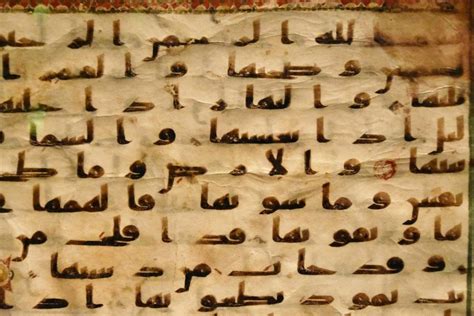 الله الرحمن الر
والشمس وضحيها والقمر ا
ذا تليها والنهار اذا
اذا يغشيها والسما
وما بنيها والارض وما طحـ
يها ونفس وما سويها فالهمها
فجورها وتقويها قد افلح من
زكيها وقد خاب من دسيها
كذبت ثمود بطغويها اذ ا